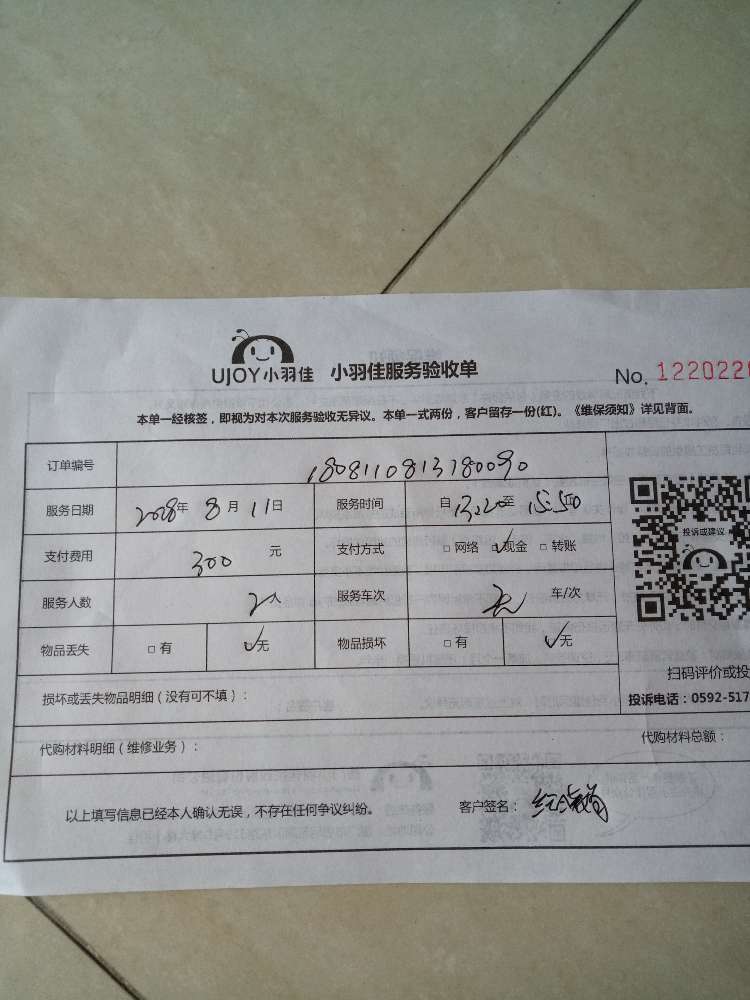 UJOY小羽佳 小羽佳服务验收单 No. 1220222
本单一经核签，即视为对本次服务验收无异议。本单一式两份，客户留存一份(红)。《维保须知》详见背面。
订单编号 18081108133780090
服务日期 2018年 8月 11日 服务时间 自 13:20 至 15:50
支付费用 300 元 支付方式 □ 网络 ☑现金 □ 转账
服务人数 2人 服务车次 无 车/次
物品丢失 □ 有 ☑无 物品损坏 □ 有 ☑无
投诉或建议
扫码评价或投
损坏或丢失物品明细（没有可不填）：
投诉电话：0592-517
代购材料明细（维修业务）： 代购材料总额：
以上填写信息已经本人确认无误，不存在任何争议纠纷。 客户签名：